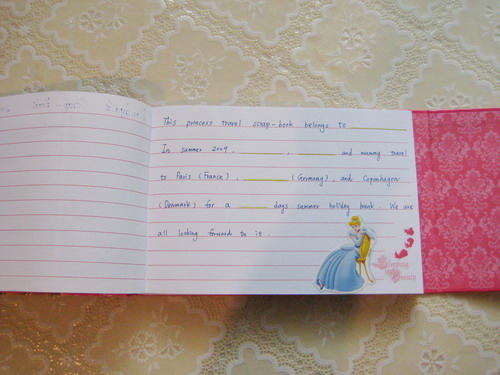 This princess travel scrap-book belongs to
In summer 2009, , and mummy travel
to Paris (France), (Germany), and Copenhagen
(Denmark) for a days summer holiday break. We are
all looking forwards to it.
Sleeping
Beauty